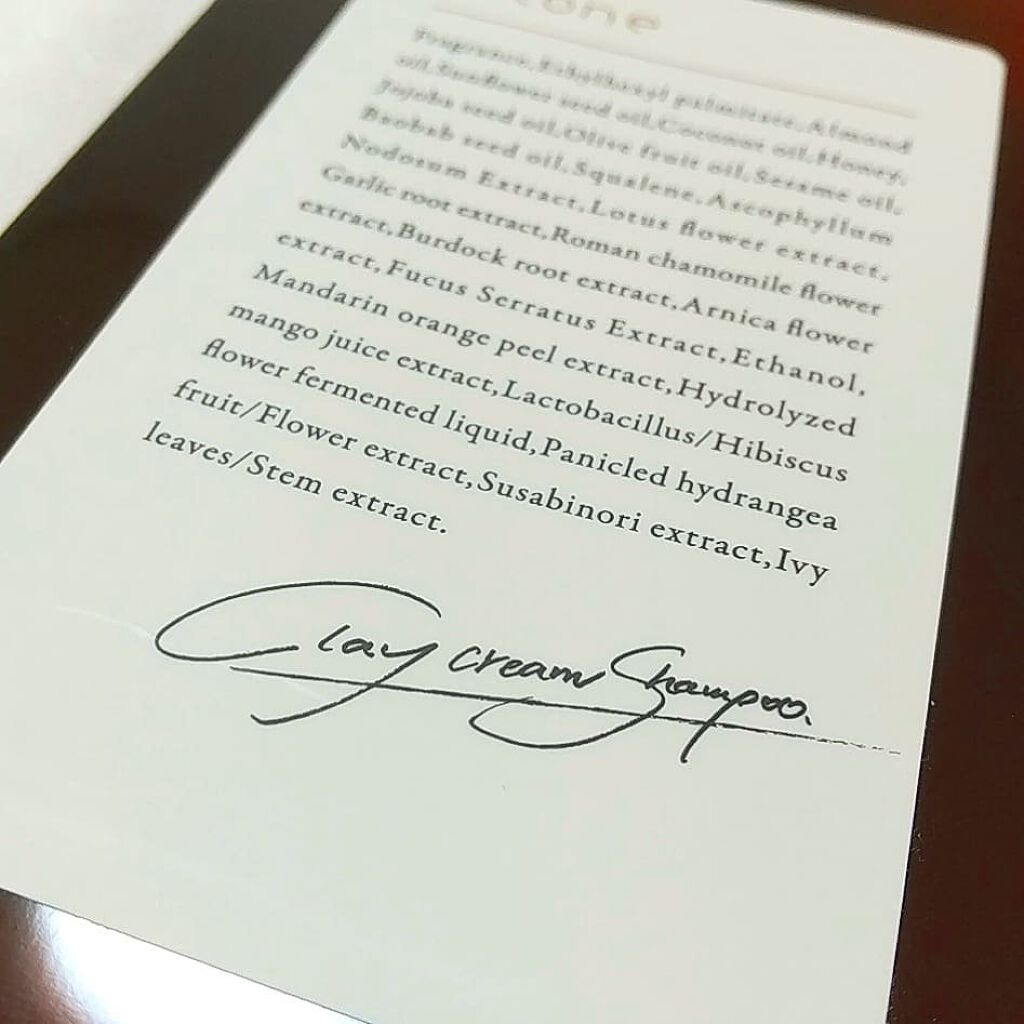 one
Fragrance,Ethylhexyl palmitate,Almond
oil,Sunflower seed oil,Coconut oil,Honey,
Jojoba seed oil,Olive fruit oil,Sesame oil,
Baobab seed oil,Squalene,Ascophyllum
Nodosum Extract,Lotus flower extract,
Garlic root extract,Roman chamomile flower
extract,Burdock root extract,Arnica flower
extract,Fucus Serratus Extract,Ethanol,
Mandarin orange peel extract,Hydrolyzed
mango juice extract,Lactobacillus/Hibiscus
flower fermented liquid,Panicled hydrangea
fruit/Flower extract,Susabinori extract,Ivy
leaves/Stem extract.
Clay cream Shampoo.